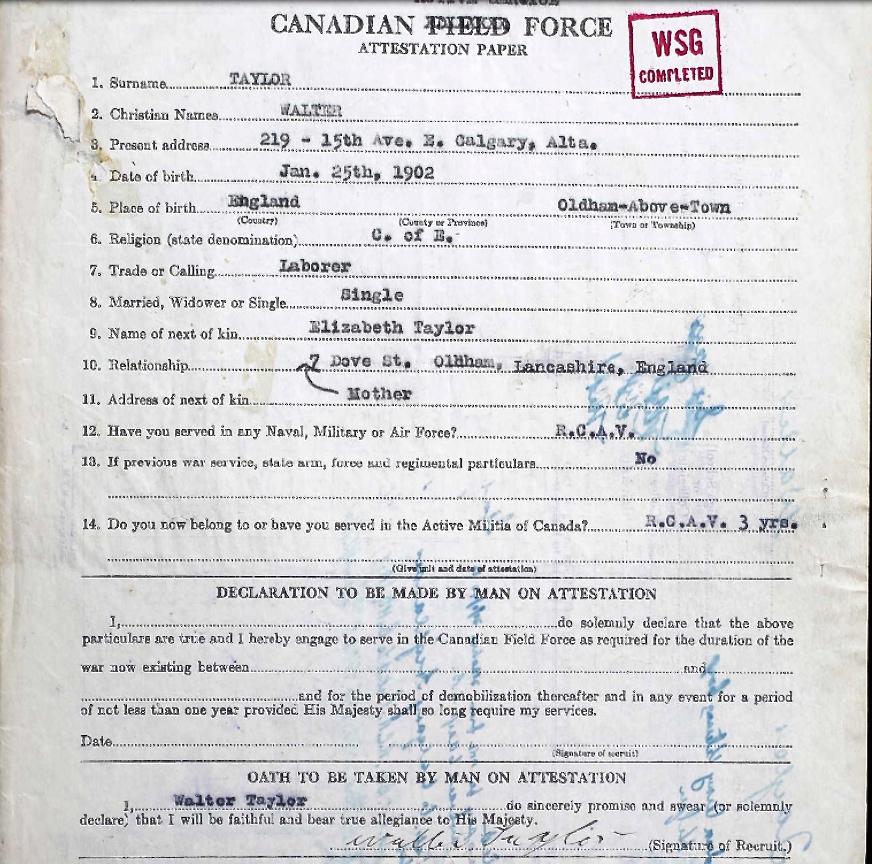 CANADIAN FIELD FORCE
ATTESTATION PAPER
WSG
COMPLETED
1. Surname TAYLOR
2. Christian Names WALTER
3. Present address 219 - 15th Ave. E. Calgary, Alta.
4. Date of birth Jan. 25th, 1902
5. Place of birth England Oldham-Above-Town
(Country) (County or Province) (Town or Township)
6. Religion (state denomination) C. of E.
7. Trade or Calling Laborer
8. Married, Widower or Single Single
9. Name of next of kin Elizabeth Taylor
10. Relationship 7 Dove St. Oldham, Lancashire, England
11. Address of next of kin Mother
12. Have you served in any Naval, Military or Air Force? R.C.A.V.
13. If previous war service, state arm, force and regimental particulars No
14. Do you now belong to or have you served in the Active Militia of Canada? R.C.A.V. 3 yrs.
(Give unit and date of attestation)
DECLARATION TO BE MADE BY MAN ON ATTESTATION
I, do solemnly declare that the above
particulars are true and I hereby engage to serve in the Canadian Field Force as required for the duration of the
war now existing between and
and for the period of demobilization thereafter and in any event for a period
of not less than one year provided His Majesty shall so long require my services.
Date
(Signature of recruit)
OATH TO BE TAKEN BY MAN ON ATTESTATION
I, Walter Taylor do sincerely promise and swear (or solemnly
declare) that I will be faithful and bear true allegiance to His Majesty.
Walter Taylor (Signature of Recruit.)